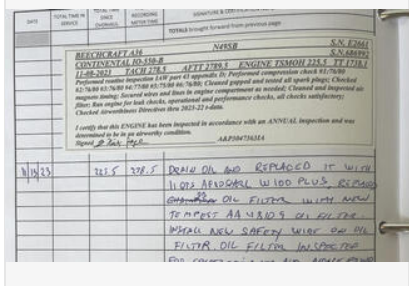 DATE
TOTAL TIME IN SERVICE
TOTAL TIME SINCE OVERHAUL
RECORDING METER TIME
SIGNATURE &
TOTALS brought forward from previous page
BEECHCRAFT A36 N495B S.N. E2661
CONTINENTAL IO-550-B S.N.686992
11-08-2023 TACH 278.5 AFTT 2789.5 ENGINE TSMOH 225.5 TT 1738.1
Performed routine inspection IAW part 43 appendix D; Performed compression check #1:76/80
#2:76/80 #3:76/80 #4:77/80 #5:75/80 #6:76/80; Cleaned gapped and tested all spark plugs; Checked
magneto timing; Secured wires and lines in engine compartment as needed; Cleaned and inspected air
filter; Ran engine for leak checks, operational and performance checks, all checks satisfactory;
Checked Airworthiness Directives thru 2023-22 t-data.
I certify that this ENGINE has been inspected in accordance with an ANNUAL inspection and was
determined to be in an airworthy condition.
Signed
11/13/23 225.5 278.5 DRAIN OIL AND REPLACED IT WITH
11 QTS AEROSHELL W100 PLUS,
OIL FILTER WITH NEW
TEMPEST OIL FILTER.
INSTALL NEW SAFETY WIRE ON OIL
FILTER. OIL FILTER INSPECTED
FOR